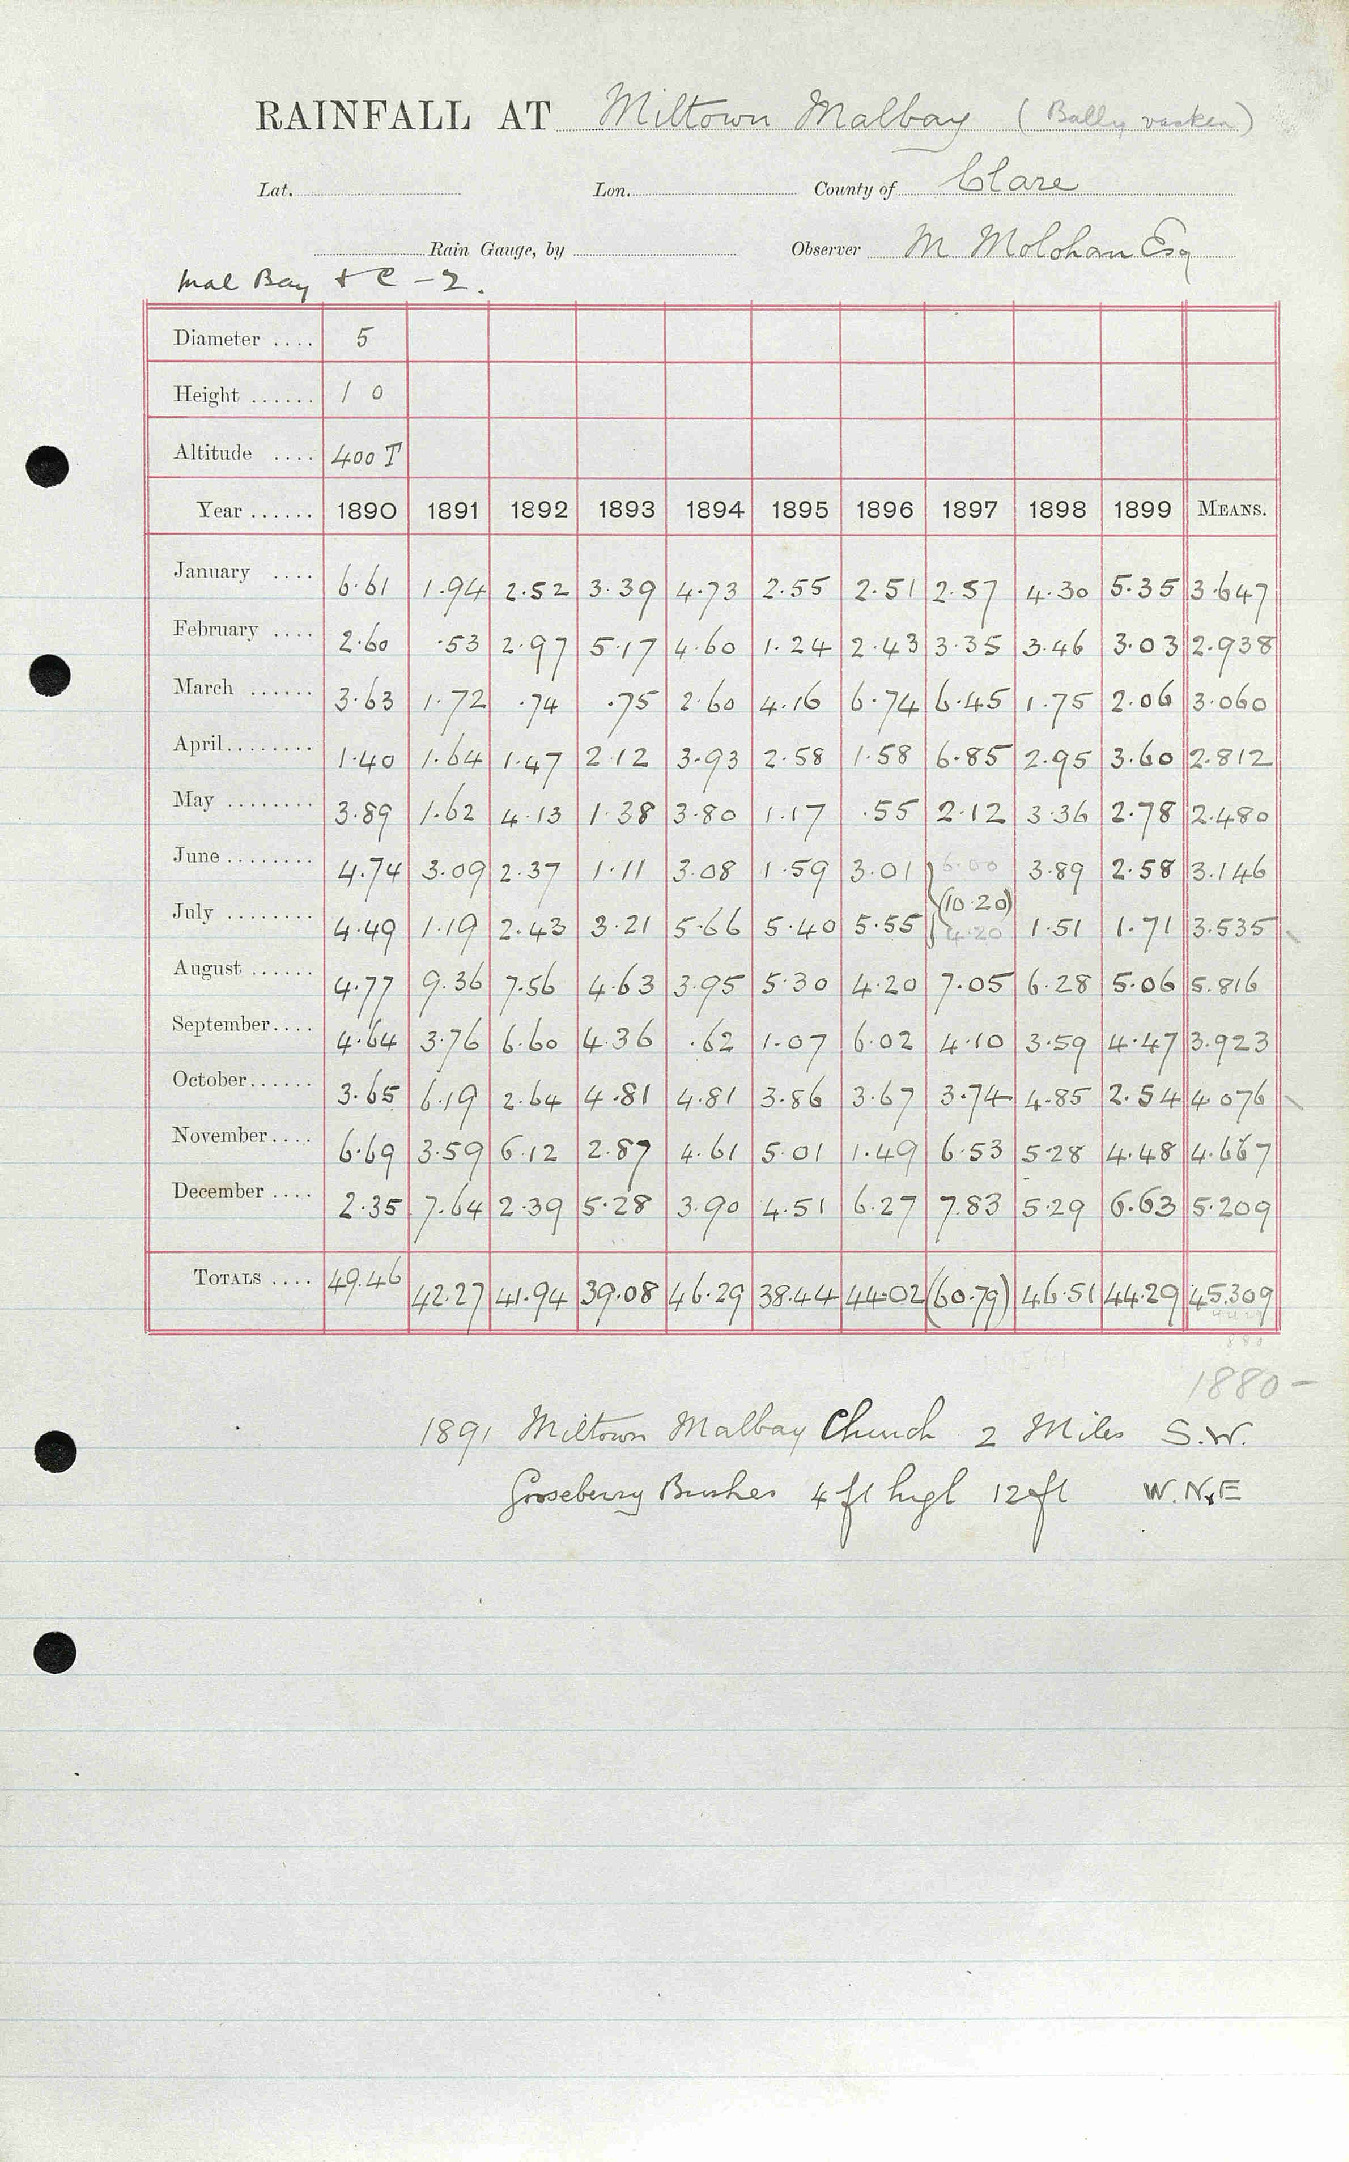 RAINFALL AT Miltown Malbay (Bally vasken)
Lat. Lon. County of Clare
Rain Gauge, by Observer M Molohan Esq
Mal Bay + C - 2.
Diameter .... 5
Height ...... 1 0
Altitude .... 400 T
Year ...... 1890 1891 1892 1893 1894 1895 1896 1897 1898 1899 MEANS.
January .... 6.61 1.94 2.52 3.39 4.73 2.55 2.51 2.57 4.30 5.35 3.647
February .... 2.60 .53 2.97 5.17 4.60 1.24 2.43 3.35 3.46 3.03 2.938
March ...... 3.63 1.72 .74 .75 2.60 4.16 6.74 6.45 1.75 2.06 3.060
April........ 1.40 1.64 1.47 2.12 3.93 2.58 1.58 6.85 2.95 3.60 2.812
May ........ 3.89 1.62 4.13 1.38 3.80 1.17 .55 2.12 3.36 2.78 2.480
June ........ 4.74 3.09 2.37 1.11 3.08 1.59 3.01 6.00 3.89 2.58 3.146
(10.20)
July ........ 4.49 1.19 2.43 3.21 5.66 5.40 5.55 4.20 1.51 1.71 3.535
August ...... 4.77 9.36 7.56 4.63 3.95 5.30 4.20 7.05 6.28 5.06 5.816
September.... 4.64 3.76 6.60 4.36 .62 1.07 6.02 4.10 3.59 4.47 3.923
October...... 3.65 6.19 2.64 4.81 4.81 3.86 3.67 3.74 4.85 2.54 4.076
November.... 6.69 3.59 6.12 2.87 4.61 5.01 1.49 6.53 5.28 4.48 4.667
December .... 2.35 7.64 2.39 5.28 3.90 4.51 6.27 7.83 5.29 6.63 5.209
TOTALS .... 49.46 42.27 41.94 39.08 46.29 38.44 44.02 (60.79) 46.51 44.29 45.309
1880 -
1891 Miltown Malbay Church 2 Miles S.W.
Gooseberry Bushes 4 ft high 12 ft W.N,E